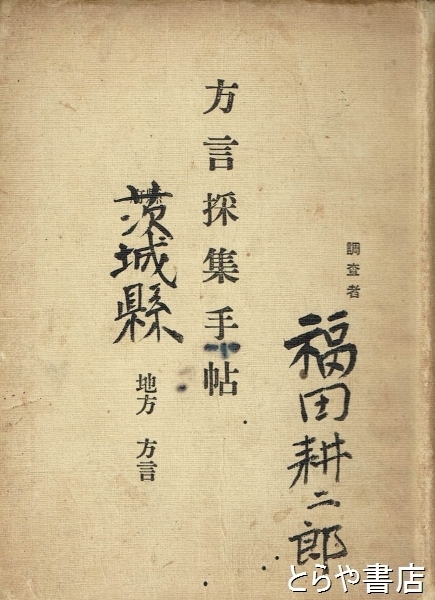 調査者
福田耕二郎
方言採集手帖
茨城縣
地方 方言
とらや書店